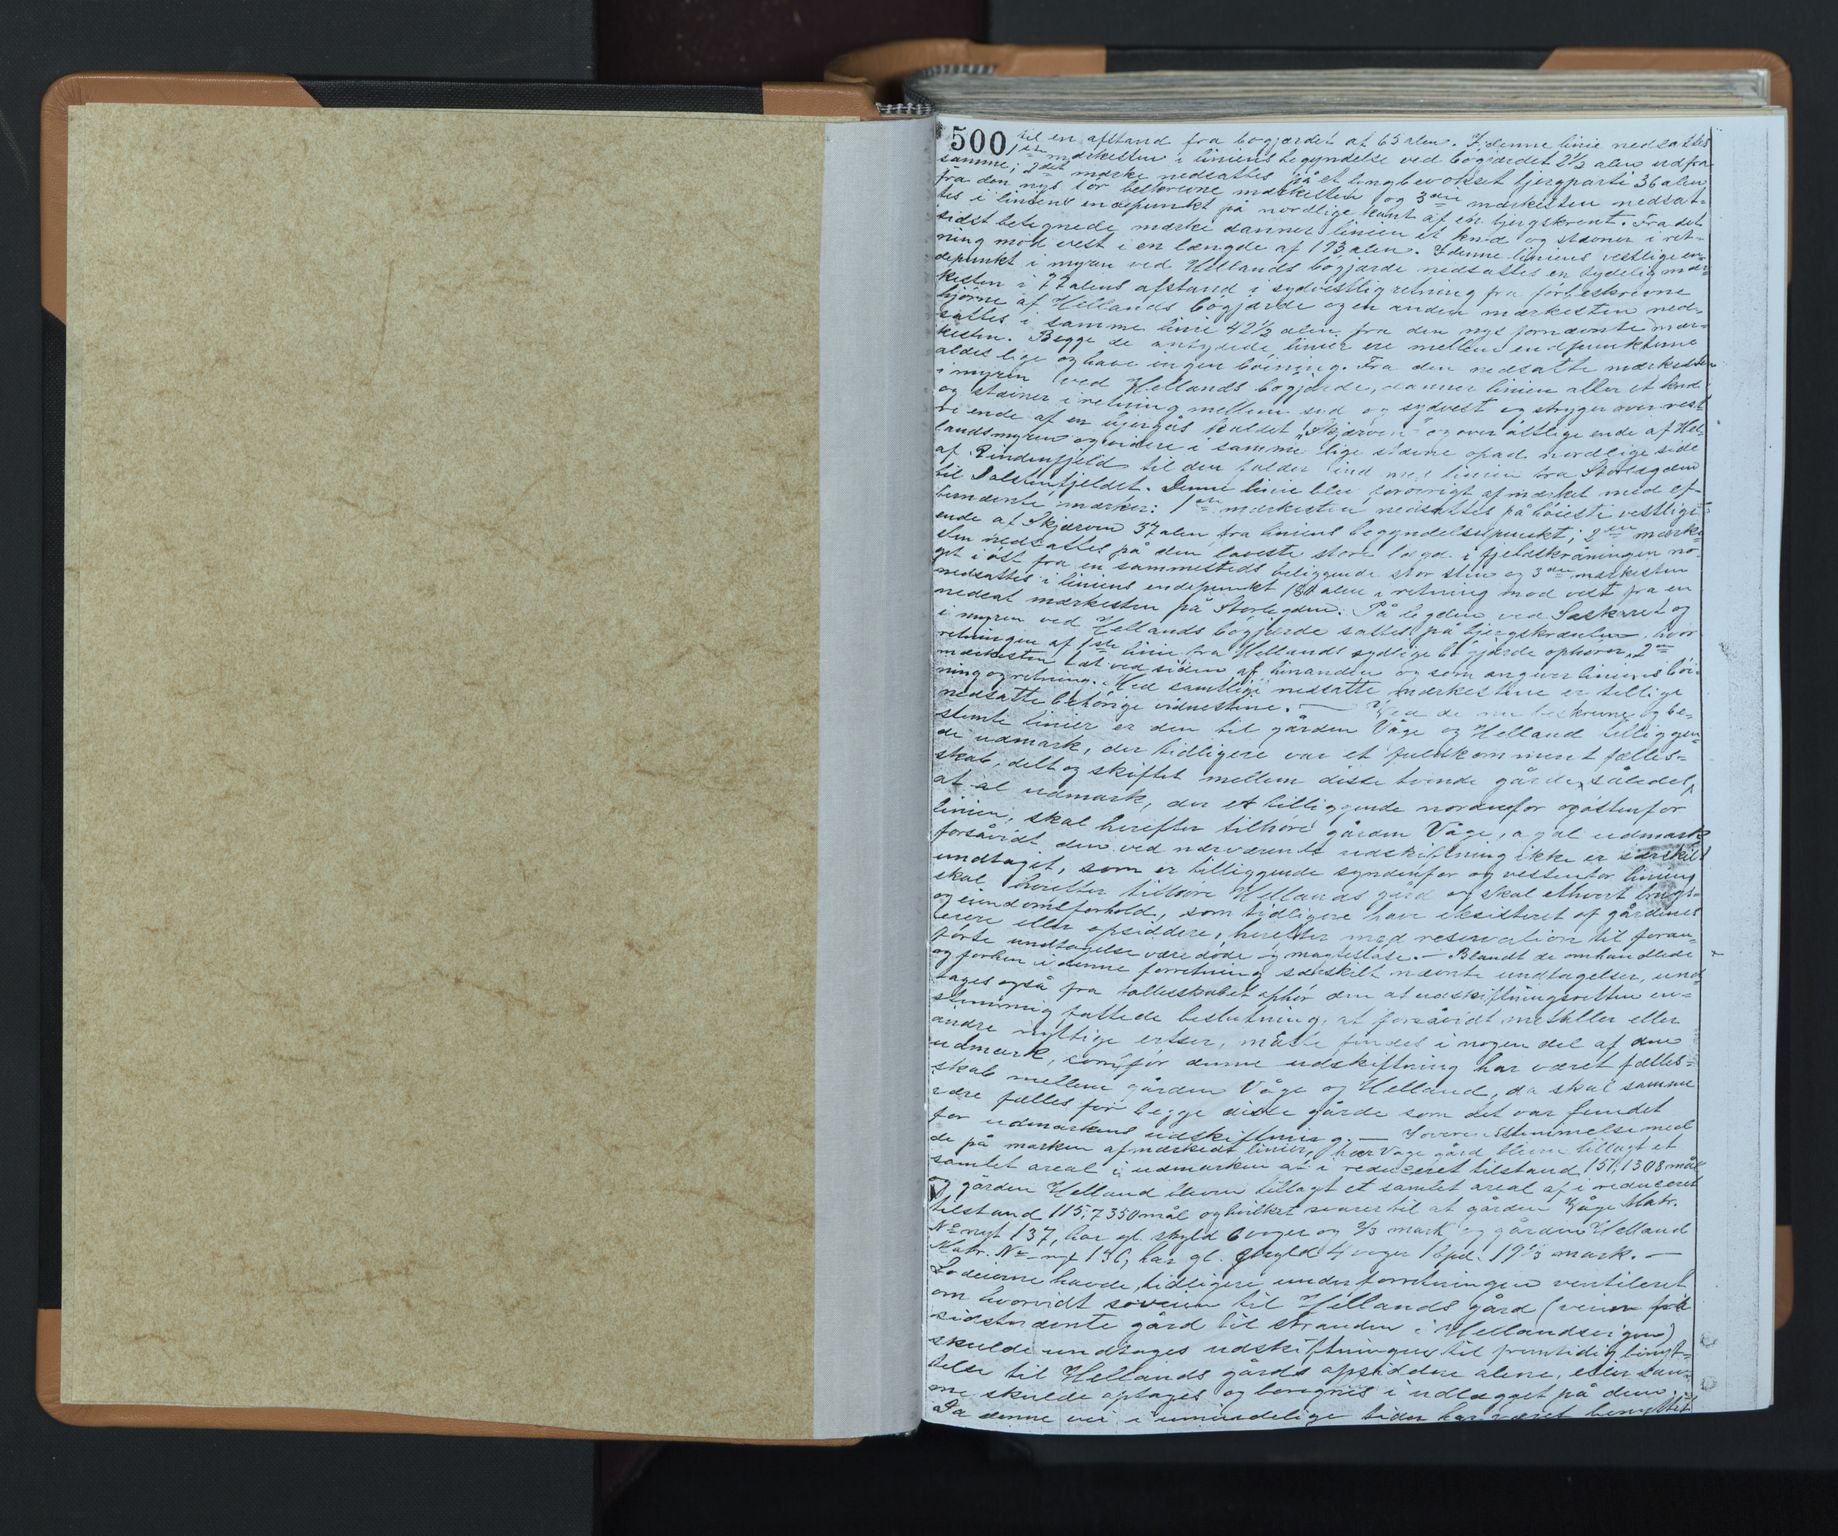 500 til en afstand fra bøgjærdet af 65 alen. I denne linie nedsattes
1ste mærkesten i liniens begyndelse ved bøgjærdet 2 1/3 alen udfra
samme; 2det mærke nedsattes på et lyngbevokset bjergparti 36 alen
fra den nys før beskrevne mærkesten og 3die mærkesten nedsat-
tes i liniens endepunkt på nordlige kant af en bjergskrent. Fra det
sidst betegnede mærke danner linien et knæ og stævner i ret-
ning mod vest i en længde af 193 alen. I denne liniens vestlige en-
depunkt i myren ved Hellands bøgjærde nedsattes en tydelig mær-
kesten i 77 alens afstand i sydvestlig retning fra førbeskrevne
hjørne af Hellands bøgjærde og en anden mærkesten ned-
sattes i samme linie 42 1/2 alen fra den nys fornævnte mær-
kesten. Begge de antydede linier ere mellem endepunkterne
aldes lige og have ingen bøining. Fra den nedsatte mærkesten
i myren ved Hellands bøgjærde, danner linien atter et knæ
og stævner i retning mellem syd og sydvest og stryger over vest
re ende af en bjergås kaldet "Skjærven" og over østlige ende af Hel-
landsmyren og videre i samme lige stævne opad nordlige side
af Lindenfjeld til den falder ind med linien fra Storlægden
til Dalsenfjeldet. Denne linie blev forøvrigt afmærket med ef-
benævnte mærker: 1ste mærkesten nedsattes på høieste vestlige
ende af Skjærven 37 alen fra liniens begyndelsespunkt; 2den mærke-
sten nedsattes på den laveste store lægde i fjeldskråningen no-
get i øst fra en sammesteds beliggende stor sten og 3die mærkesten
nedsattes i liniens endepunkt 180 alen i retning mod vest fra en
nedsat mærkesten på Storlægden. På legden ved Saskaret og
i myren ved Hellands bøgjærde sattes på bjergskrænten, hvor
retningen af 1ste linie fra Hellands sydlige bøgjærde ophører, 2de
mærkesten tæt ved siden af hinanden og som angiver liniens bøi-
ning og retning. Med samtlige nedsatte mærkestene er tillige
nedsatte behørige vidnestene. — Ved de nu beskrevne og be-
stemte linier er den til gården Våge og Helland tilliggen-
de udmark, der tidligere var et fuldkomment fælles-
skab, delt og skiftet mellem disse tvende gårde, således,
at al udmark, der er tilliggende nordenfor og østenfor
linien, skal herefter tilhøre gården Våge, og al udmark
forsåvidt den ved nærværende udskiftning ikke er særskilt
undtaget, som er tilliggende syndenfor og vestenfor linien
skal herefter tilhøre Hellands gård og skal ethvert brugs-
og eiendomsforhold, som tidligere have eksisteret af gårdenes
eiere eller opsiddere, herefter med reservation til foran-
førte undtagelse være døde og magtesløse. — Blandt de omhandlede
og forhen i denne forretning særskilt nævnte undtagelser, und-
tages også fra fællesskabet ophør den at udskiftningsretten en-
stemmig fattede beslutning, at forsåvidt metaller eller
andre nyttige ertser, måtte findes i nogen del af den
udmark, som før denne udskiftning har været fælles-
skab mellem gården Våge og Helland, da skal samme
være fælles for begge disse gårde som det var fundet
før udmarkens udskiftning. — I overensstemmelse med
de på marken afmærkede linier, har Våge gård bleven tillagt et
samlet areal i udmarken af i reduceret tilstand 151,1308 mål
og gården Helland bleven tillagt et samlet areal af i reduceret
tilstand 115,7350 mål og hvilket svarer til at gården Våge Matr.
No nyt 137, har gl. skyld 6 voger og 2/3 mark og gården Helland
Matr. No nyt 136, har gl. skyld 4 voger 1 Bpd. 19 1/3 mark. —
Lodeierne havde tidligere under forretningen ventileret
om hvorvidt søveien til Hellands gård (veien fra
sidstnævnte gård til stranden i Hellandsvigen)
skulde undtages udskiftningen til fremtidig benyt-
telse til Hellands gårds opsiddere alene, eller sam-
me skulde optages og beregnes i udlægget på den.
Da denne vei i umindelige tider har været benyttet